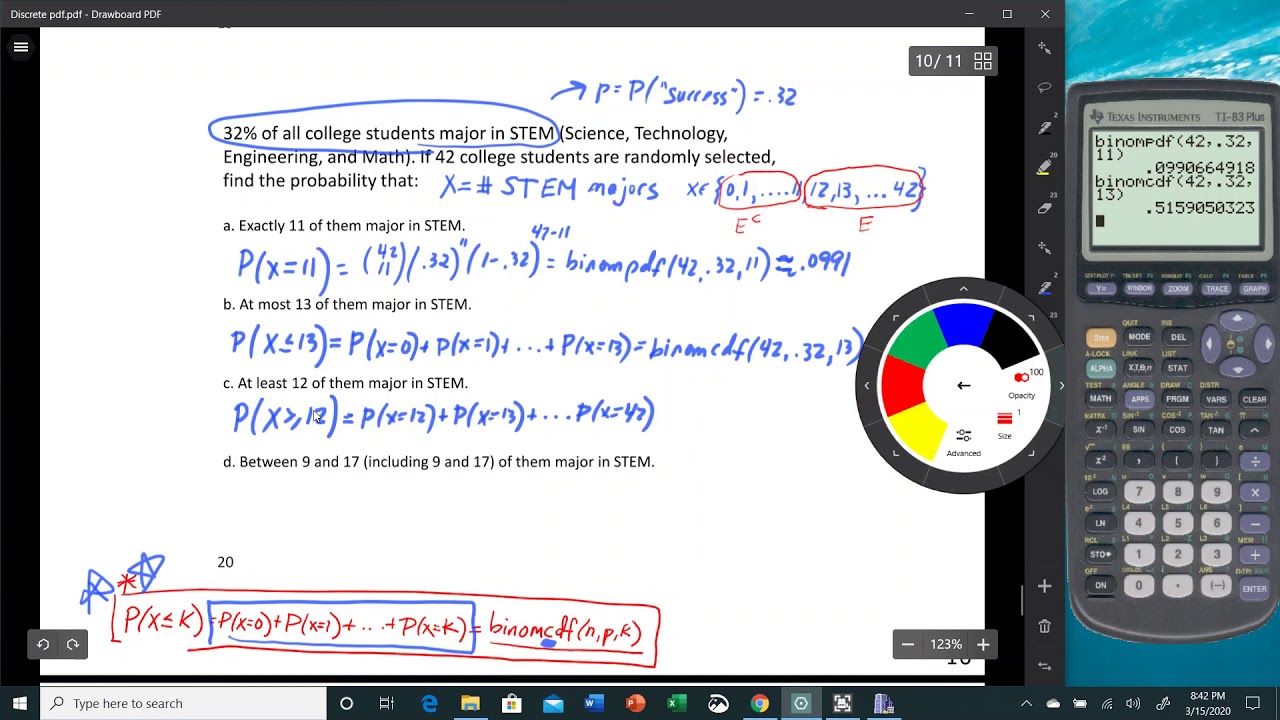 Discrete pdf.pdf - Drawboard PDF
10/ 11
→ p = P("success") = .32
32% of all college students major in STEM (Science, Technology,
Engineering, and Math). If 42 college students are randomly selected,
find the probability that: X = # STEM majors x∈ {0,1, ....11, 12,13, ... 42}
E^c E
a. Exactly 11 of them major in STEM.
P(x=11) = (42 11)(.32)^11 (1-.32)^42-11 = binompdf(42,.32,11) ≈ .0991
b. At most 13 of them major in STEM.
P(X≤13) = P(x=0) + P(x=1) + ... + P(x=13) = binomcdf(42, .32, 13)
c. At least 12 of them major in STEM.
P(X≥12) = P(x=12) + P(x=13) + ... P(x=42)
d. Between 9 and 17 (including 9 and 17) of them major in STEM.
20
* P(X≤K) = P(x=0) + P(x=1) + ... + P(x=K) = binomcdf(n,p,k)
123%
100
Opacity
1
Size
Advanced
20
23
23
TEXAS INSTRUMENTS TI-83 Plus
binompdf(42,.32,
11)
.0990664918
binomcdf(42,.32,
13)
.5159050323
STAT PLOT F1 TBLSET F2 FORMAT F3 CALC F4 TABLE F5
Y= WINDOW ZOOM TRACE GRAPH
2nd MODE DEL
A-LOCK LINK LIST
ALPHA X,T,θ,n STAT
TEST A ANGLE B DRAW C DISTR
MATH APPS PRGM VARS CLEAR
X⁻¹ SIN COS TAN ^
X² , ( ) ÷
LOG 7 8 9 ×
LN 4 5 6 −
STO▸ 1 2 3 +
OFF CATALOG
ON 0 . (−) ENTER
Type here to search
8:42 PM
3/15/2020